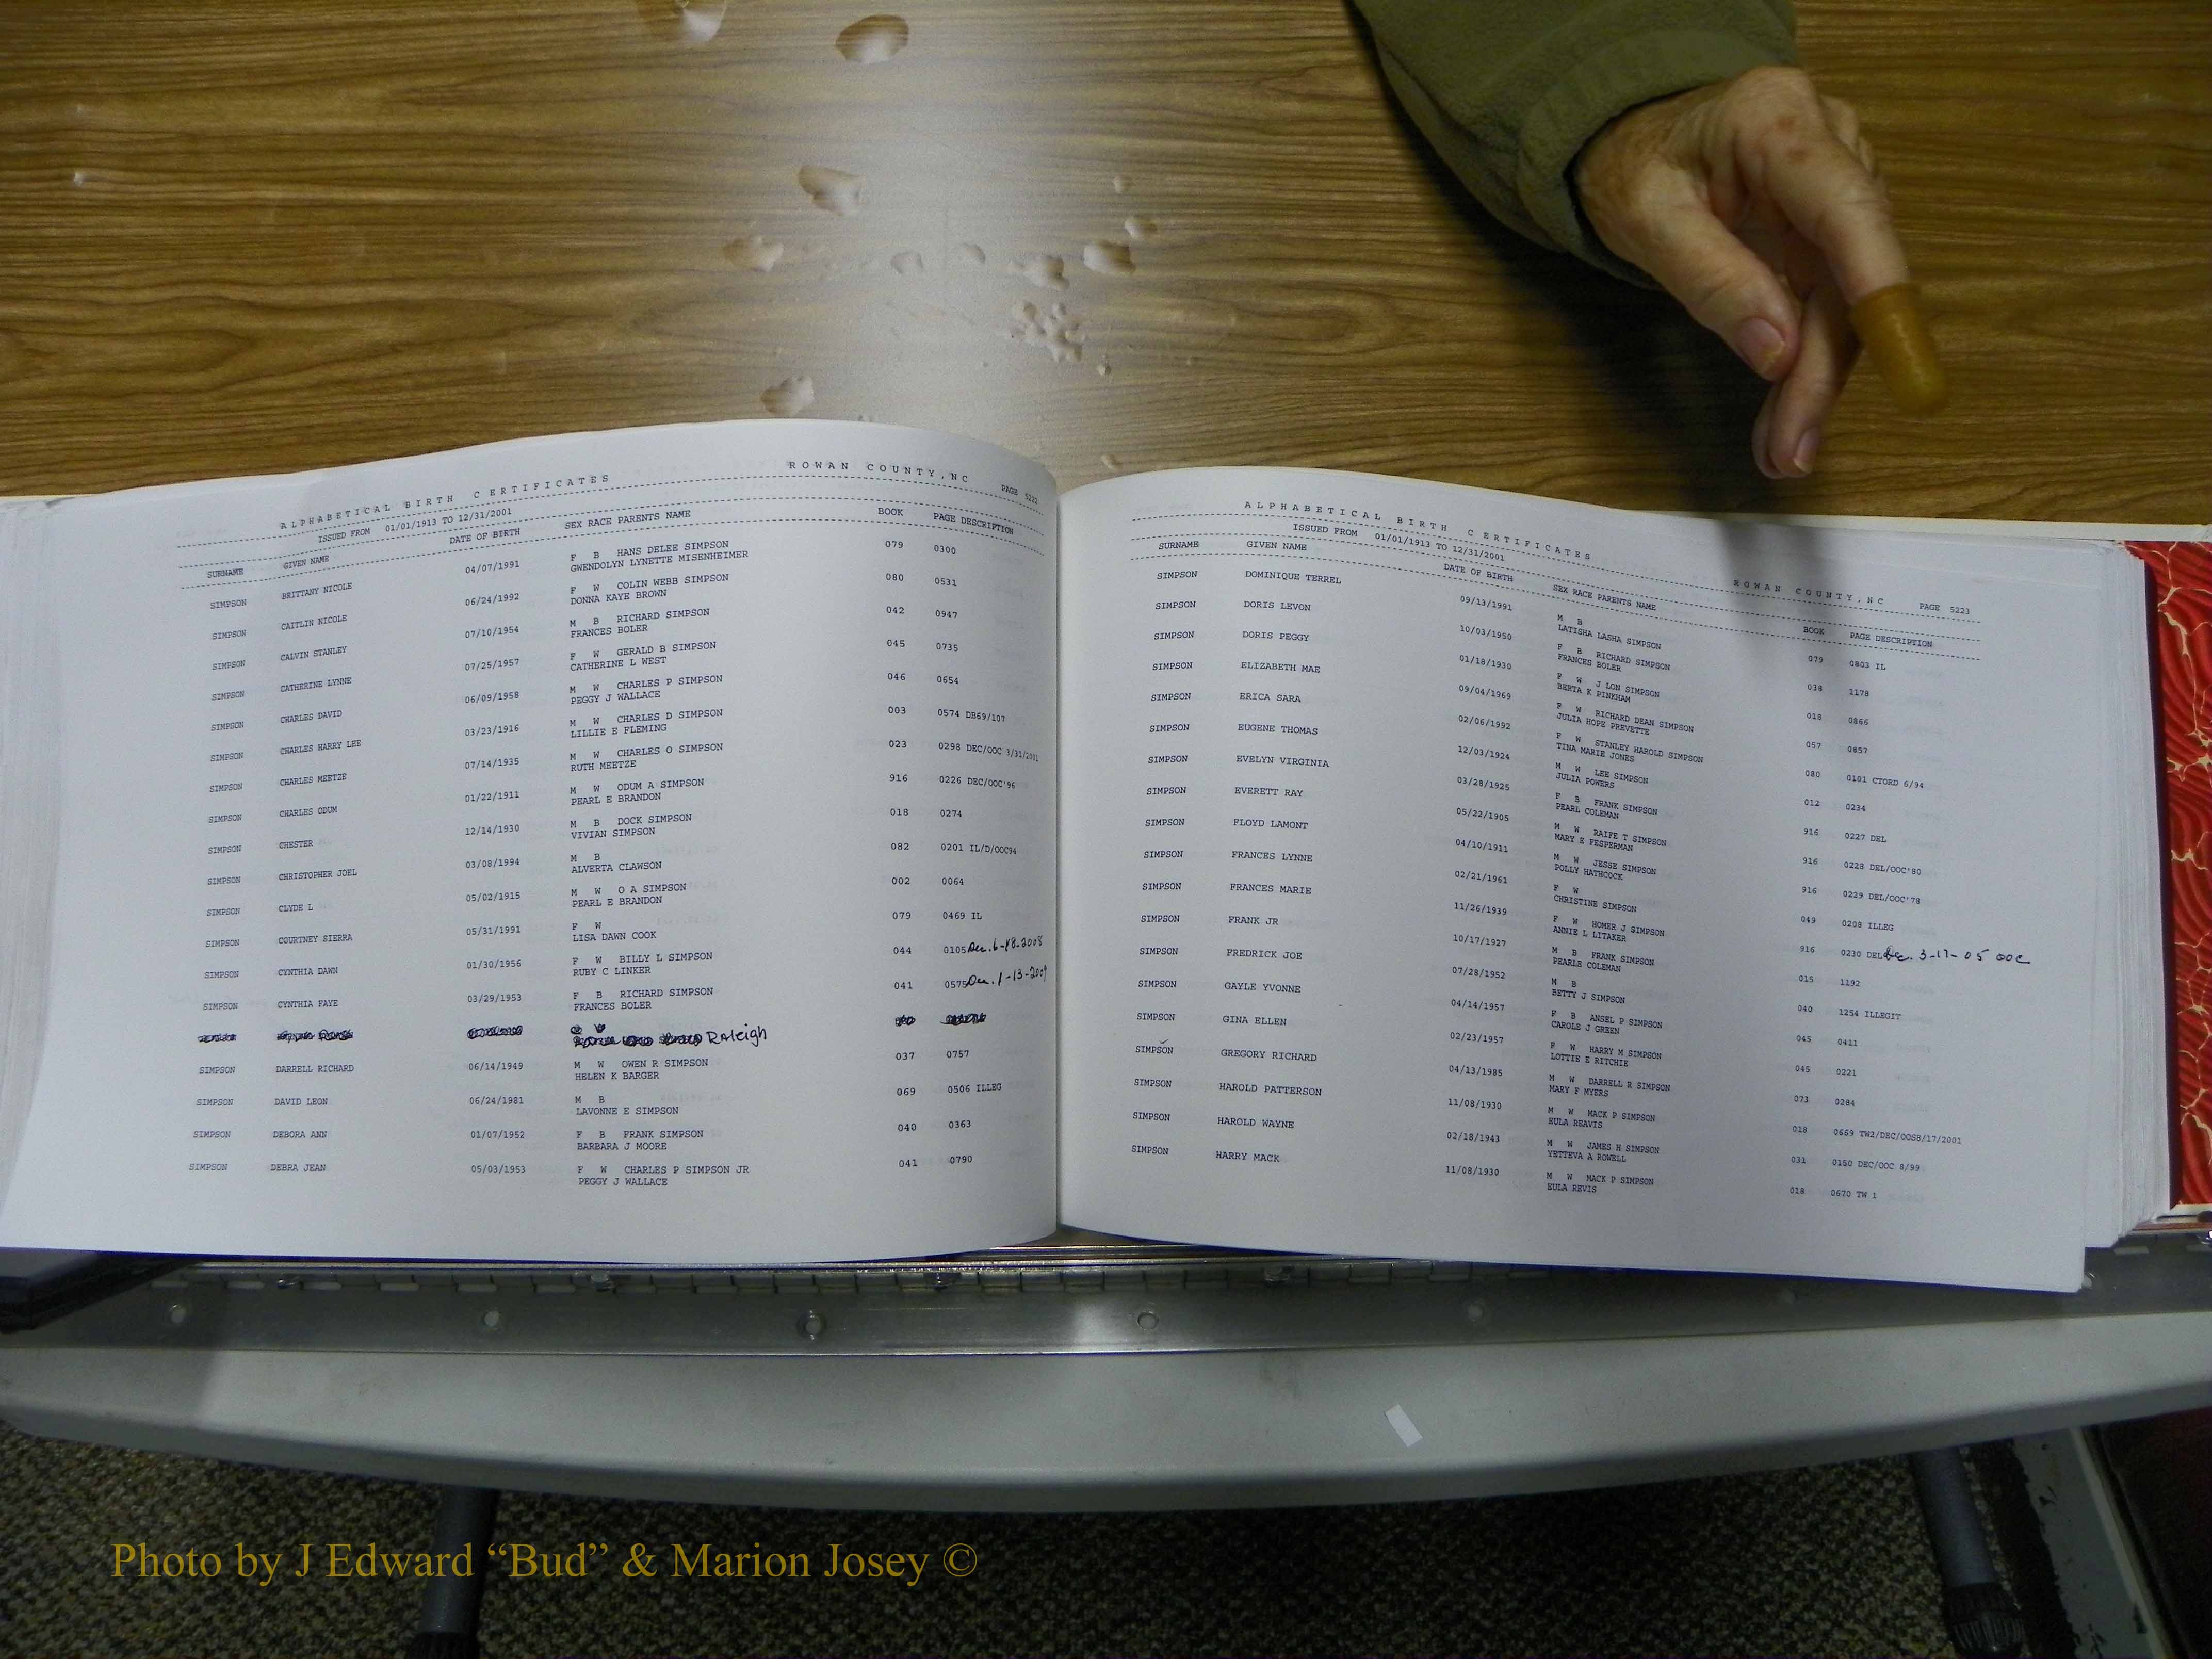 ALPHABETICAL BIRTH CERTIFICATES ROWAN COUNTY,NC PAGE 5222
ISSUED FROM 01/01/1913 TO 12/31/2001
SURNAME GIVEN NAME DATE OF BIRTH SEX RACE PARENTS NAME BOOK PAGE DESCRIPTION
SIMPSON BRITTANY NICOLE 04/07/1991 F B HANS DELEE SIMPSON 079 0300
GWENDOLYN LYNETTE MISENHEIMER
SIMPSON CAITLIN NICOLE 06/24/1992 F W COLIN WEBB SIMPSON 080 0531
DONNA KAYE BROWN
SIMPSON CALVIN STANLEY 07/10/1954 M B RICHARD SIMPSON 042 0947
FRANCES BOLER
SIMPSON CATHERINE LYNNE 07/25/1957 F W GERALD B SIMPSON 045 0735
CATHERINE L WEST
SIMPSON CHARLES DAVID 06/09/1958 M W CHARLES P SIMPSON 046 0654
PEGGY J WALLACE
SIMPSON CHARLES HARRY LEE 03/23/1916 M W CHARLES D SIMPSON 003 0574 DB69/107
LILLIE E FLEMING
SIMPSON CHARLES MEETZE 07/14/1935 M W CHARLES O SIMPSON 023 0298 DEC/OOC 3/31/2001
RUTH MEETZE
SIMPSON CHARLES ODUM 01/22/1911 M W ODUM A SIMPSON 916 0226 DEC/OOC'96
PEARL E BRANDON
SIMPSON CHESTER 12/14/1930 M B DOCK SIMPSON 018 0274
VIVIAN SIMPSON
SIMPSON CHRISTOPHER JOEL 03/08/1994 M B 082 0201 IL/D/OOC94
ALVERTA CLAWSON
SIMPSON CLYDE L 05/02/1915 M W O A SIMPSON 002 0064
PEARL E BRANDON
SIMPSON COURTNEY SIERRA 05/31/1991 F W 079 0469 IL
LISA DAWN COOK
SIMPSON CYNTHIA DAWN 01/30/1956 F W BILLY L SIMPSON 044 0105 Dec. 6-18-2008
RUBY C LINKER
SIMPSON CYNTHIA FAYE 03/29/1953 F B RICHARD SIMPSON 041 0575 Dec. 1-13-2009
FRANCES BOLER
Raleigh
SIMPSON DARRELL RICHARD 06/14/1949 M W OWEN R SIMPSON 037 0757
HELEN K BARGER
SIMPSON DAVID LEON 06/24/1981 M B 069 0506 ILLEG
LAVONNE E SIMPSON
SIMPSON DEBORA ANN 01/07/1952 F B FRANK SIMPSON 040 0363
BARBARA J MOORE
SIMPSON DEBRA JEAN 05/03/1953 F W CHARLES P SIMPSON JR 041 0790
PEGGY J WALLACE
ALPHABETICAL BIRTH CERTIFICATES ROWAN COUNTY,NC PAGE 5223
ISSUED FROM 01/01/1913 TO 12/31/2001
SURNAME GIVEN NAME DATE OF BIRTH SEX RACE PARENTS NAME BOOK PAGE DESCRIPTION
SIMPSON DOMINIQUE TERREL 09/13/1991 M B 079 0803 IL
LATISHA LASHA SIMPSON
SIMPSON DORIS LEVON 10/03/1950 F B RICHARD SIMPSON 038 1178
FRANCES BOLER
SIMPSON DORIS PEGGY 01/18/1930 F W J LON SIMPSON 018 0866
BERTA K PINKHAM
SIMPSON ELIZABETH MAE 09/04/1969 F W RICHARD DEAN SIMPSON 057 0857
JULIA HOPE PREVETTE
SIMPSON ERICA SARA 02/06/1992 F W STANLEY HAROLD SIMPSON 080 0101 CTORD 6/94
TINA MARIE JONES
SIMPSON EUGENE THOMAS 12/03/1924 M W LEE SIMPSON 012 0234
JULIA POWERS
SIMPSON EVELYN VIRGINIA 03/28/1925 F B FRANK SIMPSON 916 0227 DEL
PEARL COLEMAN
SIMPSON EVERETT RAY 05/22/1905 M W RAIFE T SIMPSON 916 0228 DEL/OOC'80
MARY E FESPERMAN
SIMPSON FLOYD LAMONT 04/10/1911 M W JESSE SIMPSON 916 0229 DEL/OOC'78
POLLY HATHCOCK
SIMPSON FRANCES LYNNE 02/21/1961 F W 049 0208 ILLEG
CHRISTINE SIMPSON
SIMPSON FRANCES MARIE 11/26/1939 F W HOMER J SIMPSON 916 0230 DEL Dec. 3-17-05 OOC
ANNIE L LITAKER
SIMPSON FRANK JR 10/17/1927 M B FRANK SIMPSON 015 1192
PEARLE COLEMAN
SIMPSON FREDRICK JOE 07/28/1952 M B 040 1254 ILLEGIT
BETTY J SIMPSON
SIMPSON GAYLE YVONNE 04/14/1957 F B ANSEL P SIMPSON 045 0411
CAROLE J GREEN
SIMPSON GINA ELLEN 02/23/1957 F W HARRY M SIMPSON 045 0221
LOTTIE E RITCHIE
SIMPSON GREGORY RICHARD 04/13/1985 M W DARRELL R SIMPSON 073 0284
MARY F MYERS
SIMPSON HAROLD PATTERSON 11/08/1930 M W MACK P SIMPSON 018 0669 TW2/DEC/OOS8/17/2001
EULA REAVIS
SIMPSON HAROLD WAYNE 02/18/1943 M W JAMES H SIMPSON 031 0150 DEC/OOC 8/99
YETTEVA A ROWELL
SIMPSON HARRY MACK 11/08/1930 M W MACK P SIMPSON 018 0670 TW 1
EULA REVIS
Photo by J Edward “Bud” & Marion Josey ©